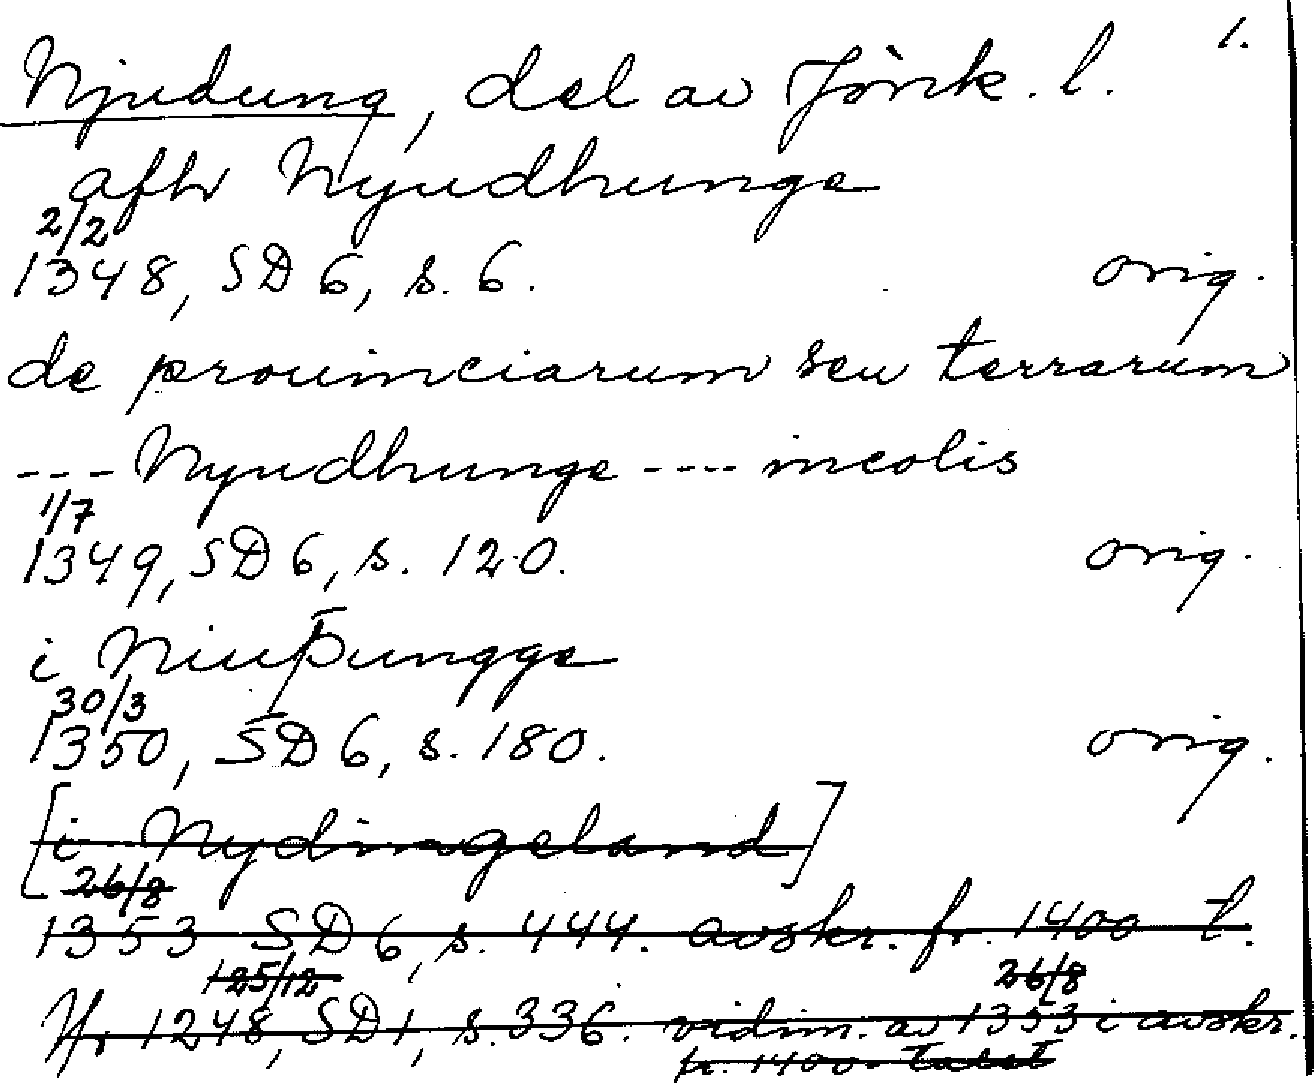 1.
Njudung, del av Jönk. l.
afhr Nyudhunge
2/2
1348, SD 6, s. 6. orig.
de prouinciarum seu terrarum
--- Nyudhunge ---- incolis
1/7
1349, SD 6, s. 120. orig.
i Niuþungge
30/3
1350, SD 6, s. 180. orig.
[i Nydingeland]
26/8
1353 SD 6, s. 444. avskr. fr. 1400 t.
125/12 26/8
Jfr 1248, SD 1, s. 336. vidim. av 1353 i avskr.
fr. 1400-talet